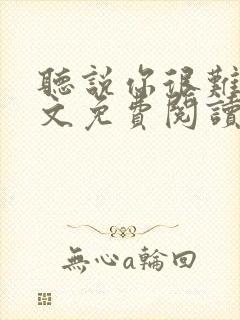 聽說你很難
文免費閱讀
無心a輪回